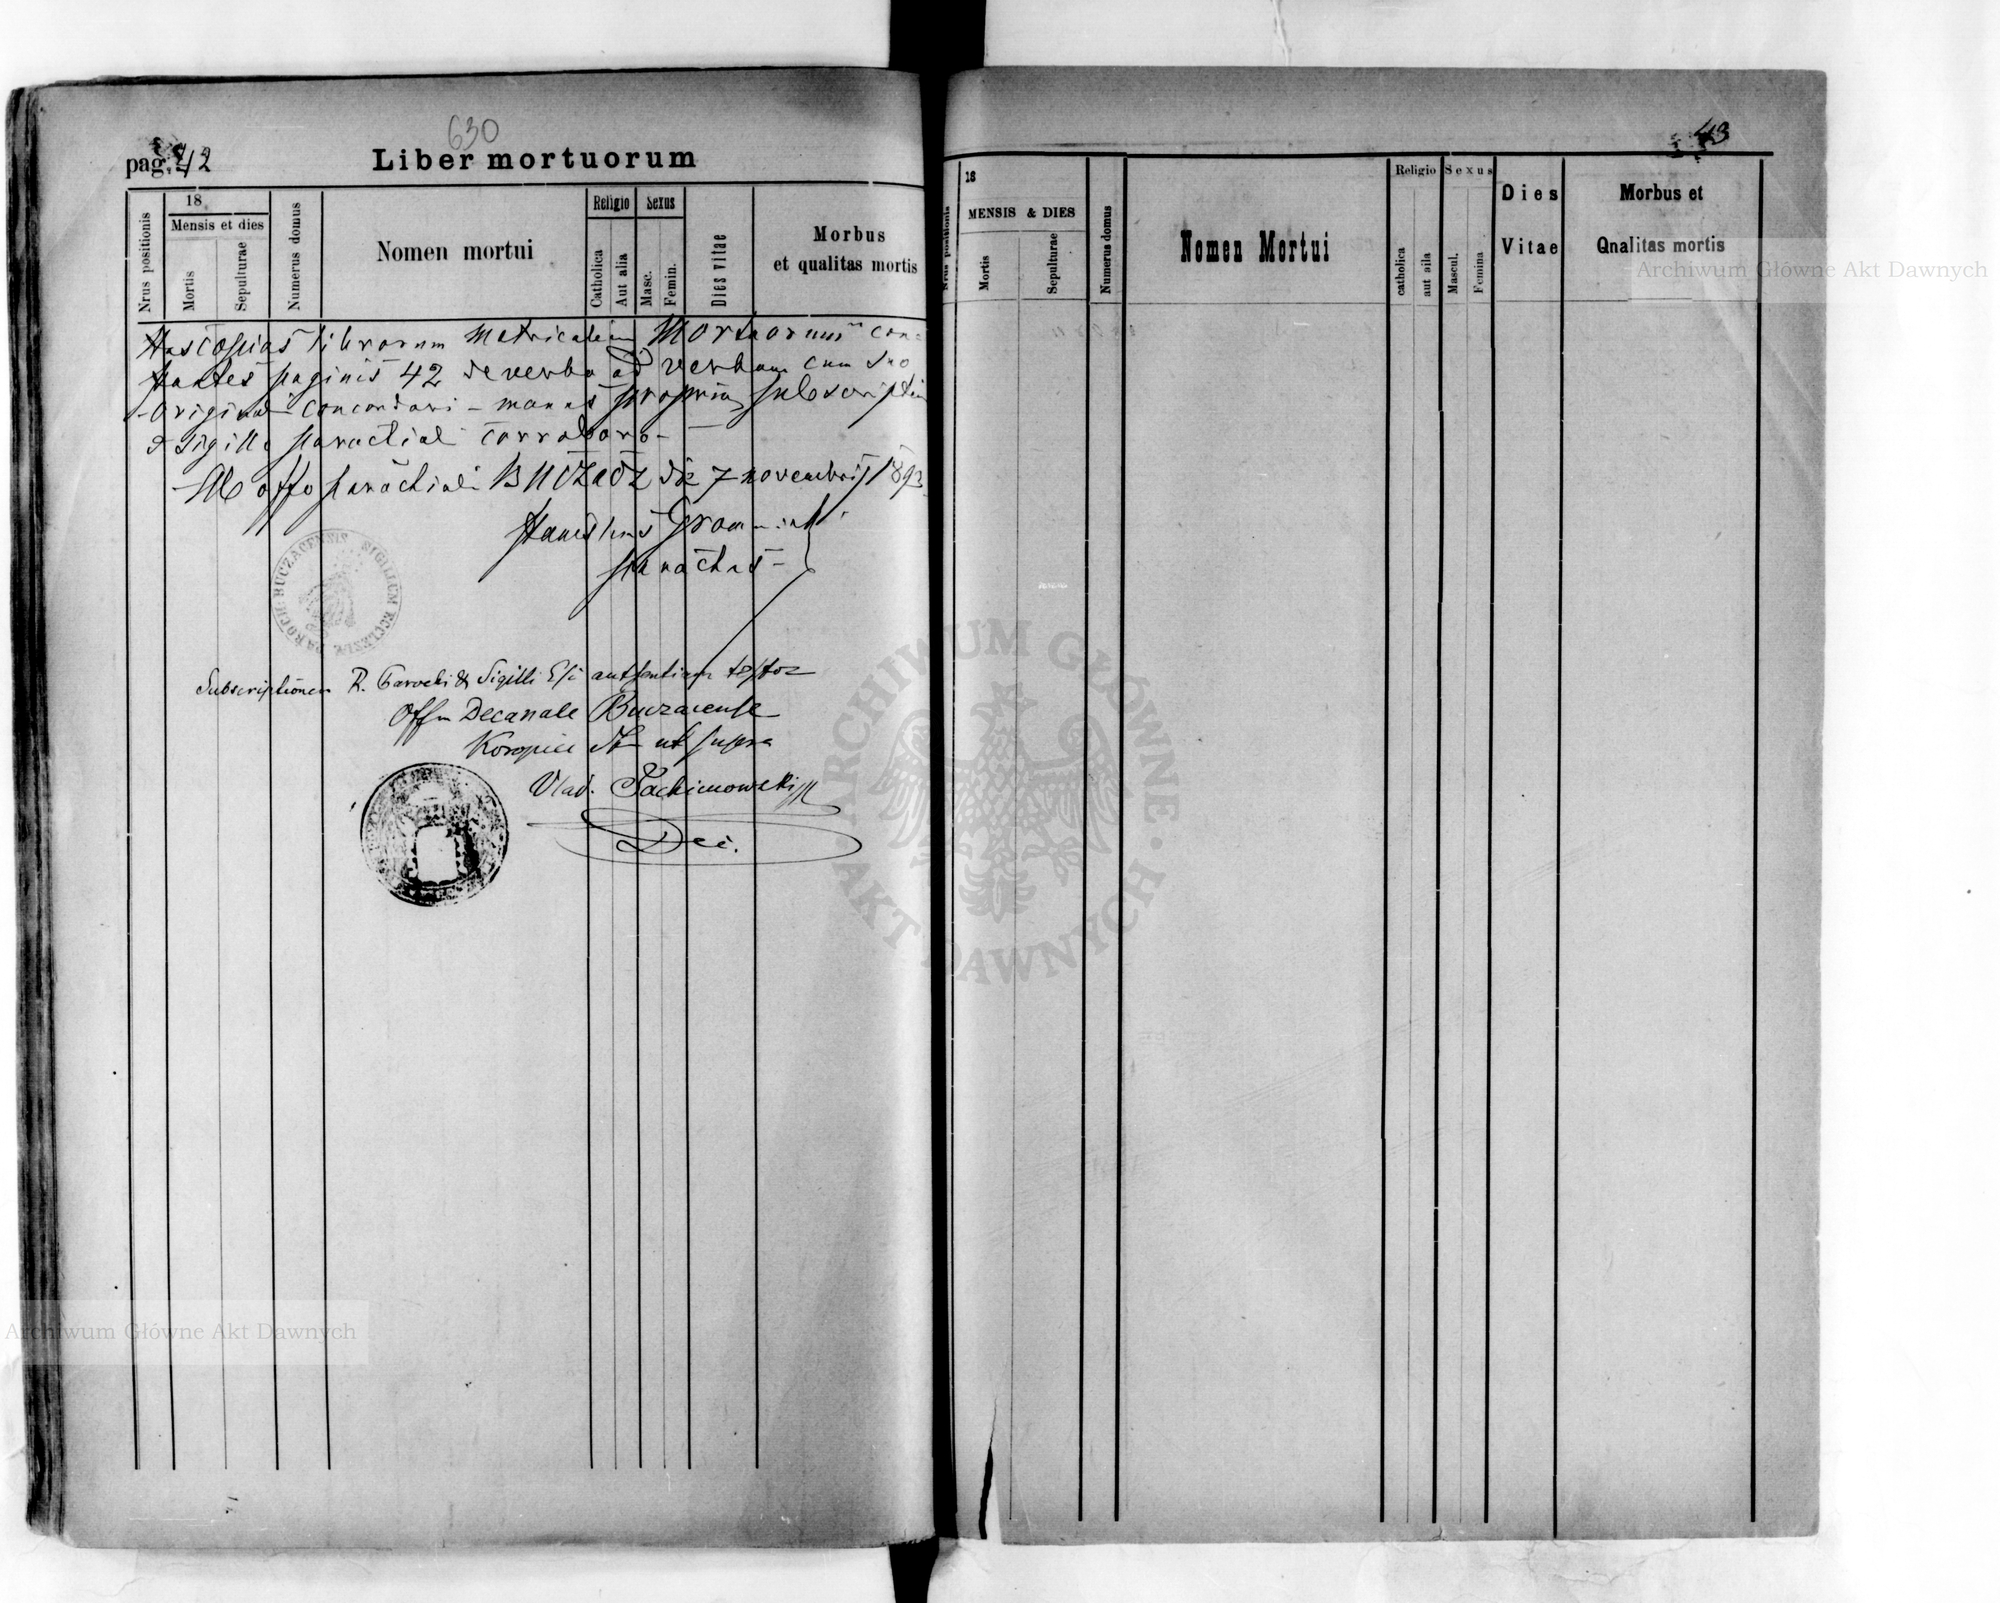 630
pag. 42
Liber mortuorum
Nrus positionis
18
Mensis et dies
Mortis
Sepulturae
Numerus domus
Nomen mortui
Religio
Catholica
Aut alia
Sexus
Masc.
Femin.
Dies vitae
Morbus
et qualitas mortis
Has copias librorum Metricalium Mortuorum con=
stantes paginis 42 de verbo ad verbum cum suo
originali concordari – manus propria subscriptione
& sigillo parochiali corroboro –
Ab offo parochiali Buczacz die 7 novembris 1893
Stanislaus Gromnicki
parochus –
SIGILLUM ECCLESIAE PAROCH BUCZACENSIS
Subscriptionem R. Parochi & Sigilli E/i authentiam testor
Offm Decanale Buczacense
Koropiec dto ut supra
Vlad. Jachimowski
Dec.
43
Nrus positionis
18
MENSIS & DIES
Mortis
Sepulturae
Numerus domus
Nomen Mortui
Religio
catholica
aut aila
Sexus
Mascul.
Femina
Dies
Vitae
Morbus et
Qnalitas mortis
Archiwum Główne Akt Dawnych
ARCHIWUM GŁÓWNE · AKT DAWNYCH ·
Archiwum Główne Akt Dawnych